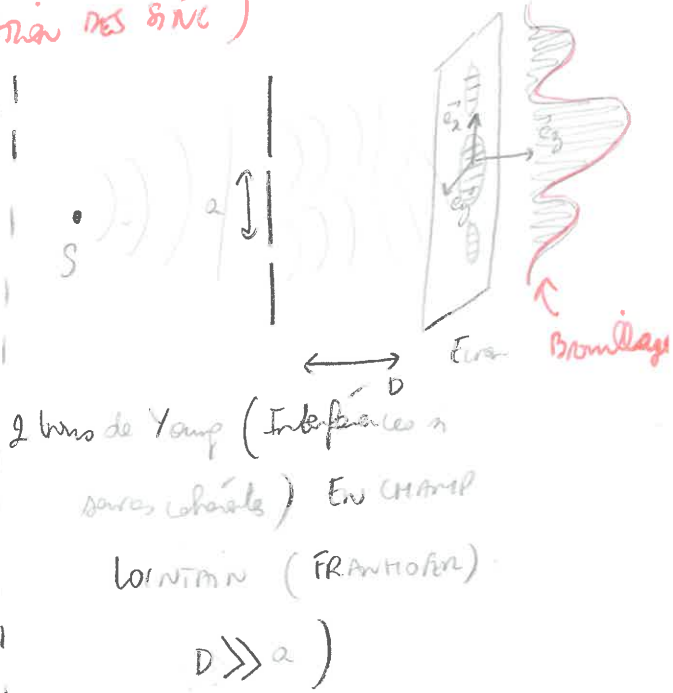 DES SINC )
S
a
D
Ecran
Brouillage
2 trous de Young ( Interférences n
sources cohérentes ) EN CHAMP
LOINTAIN ( FRANHOFER )
D >> a )